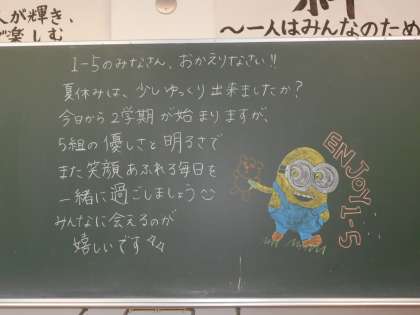 人が輝き、
で楽しむ
〜一人はみんなのため
1-5のみなさん、おかえりなさい!!
夏休みは、少しゆっくり出来ましたか？
今日から2学期が始まりますが、
5組の優しさと明るさで
また笑顔あふれる毎日を
一緒に過ごしましょう
みんなに会えるのが
嬉しいです
ENJOY 1-5